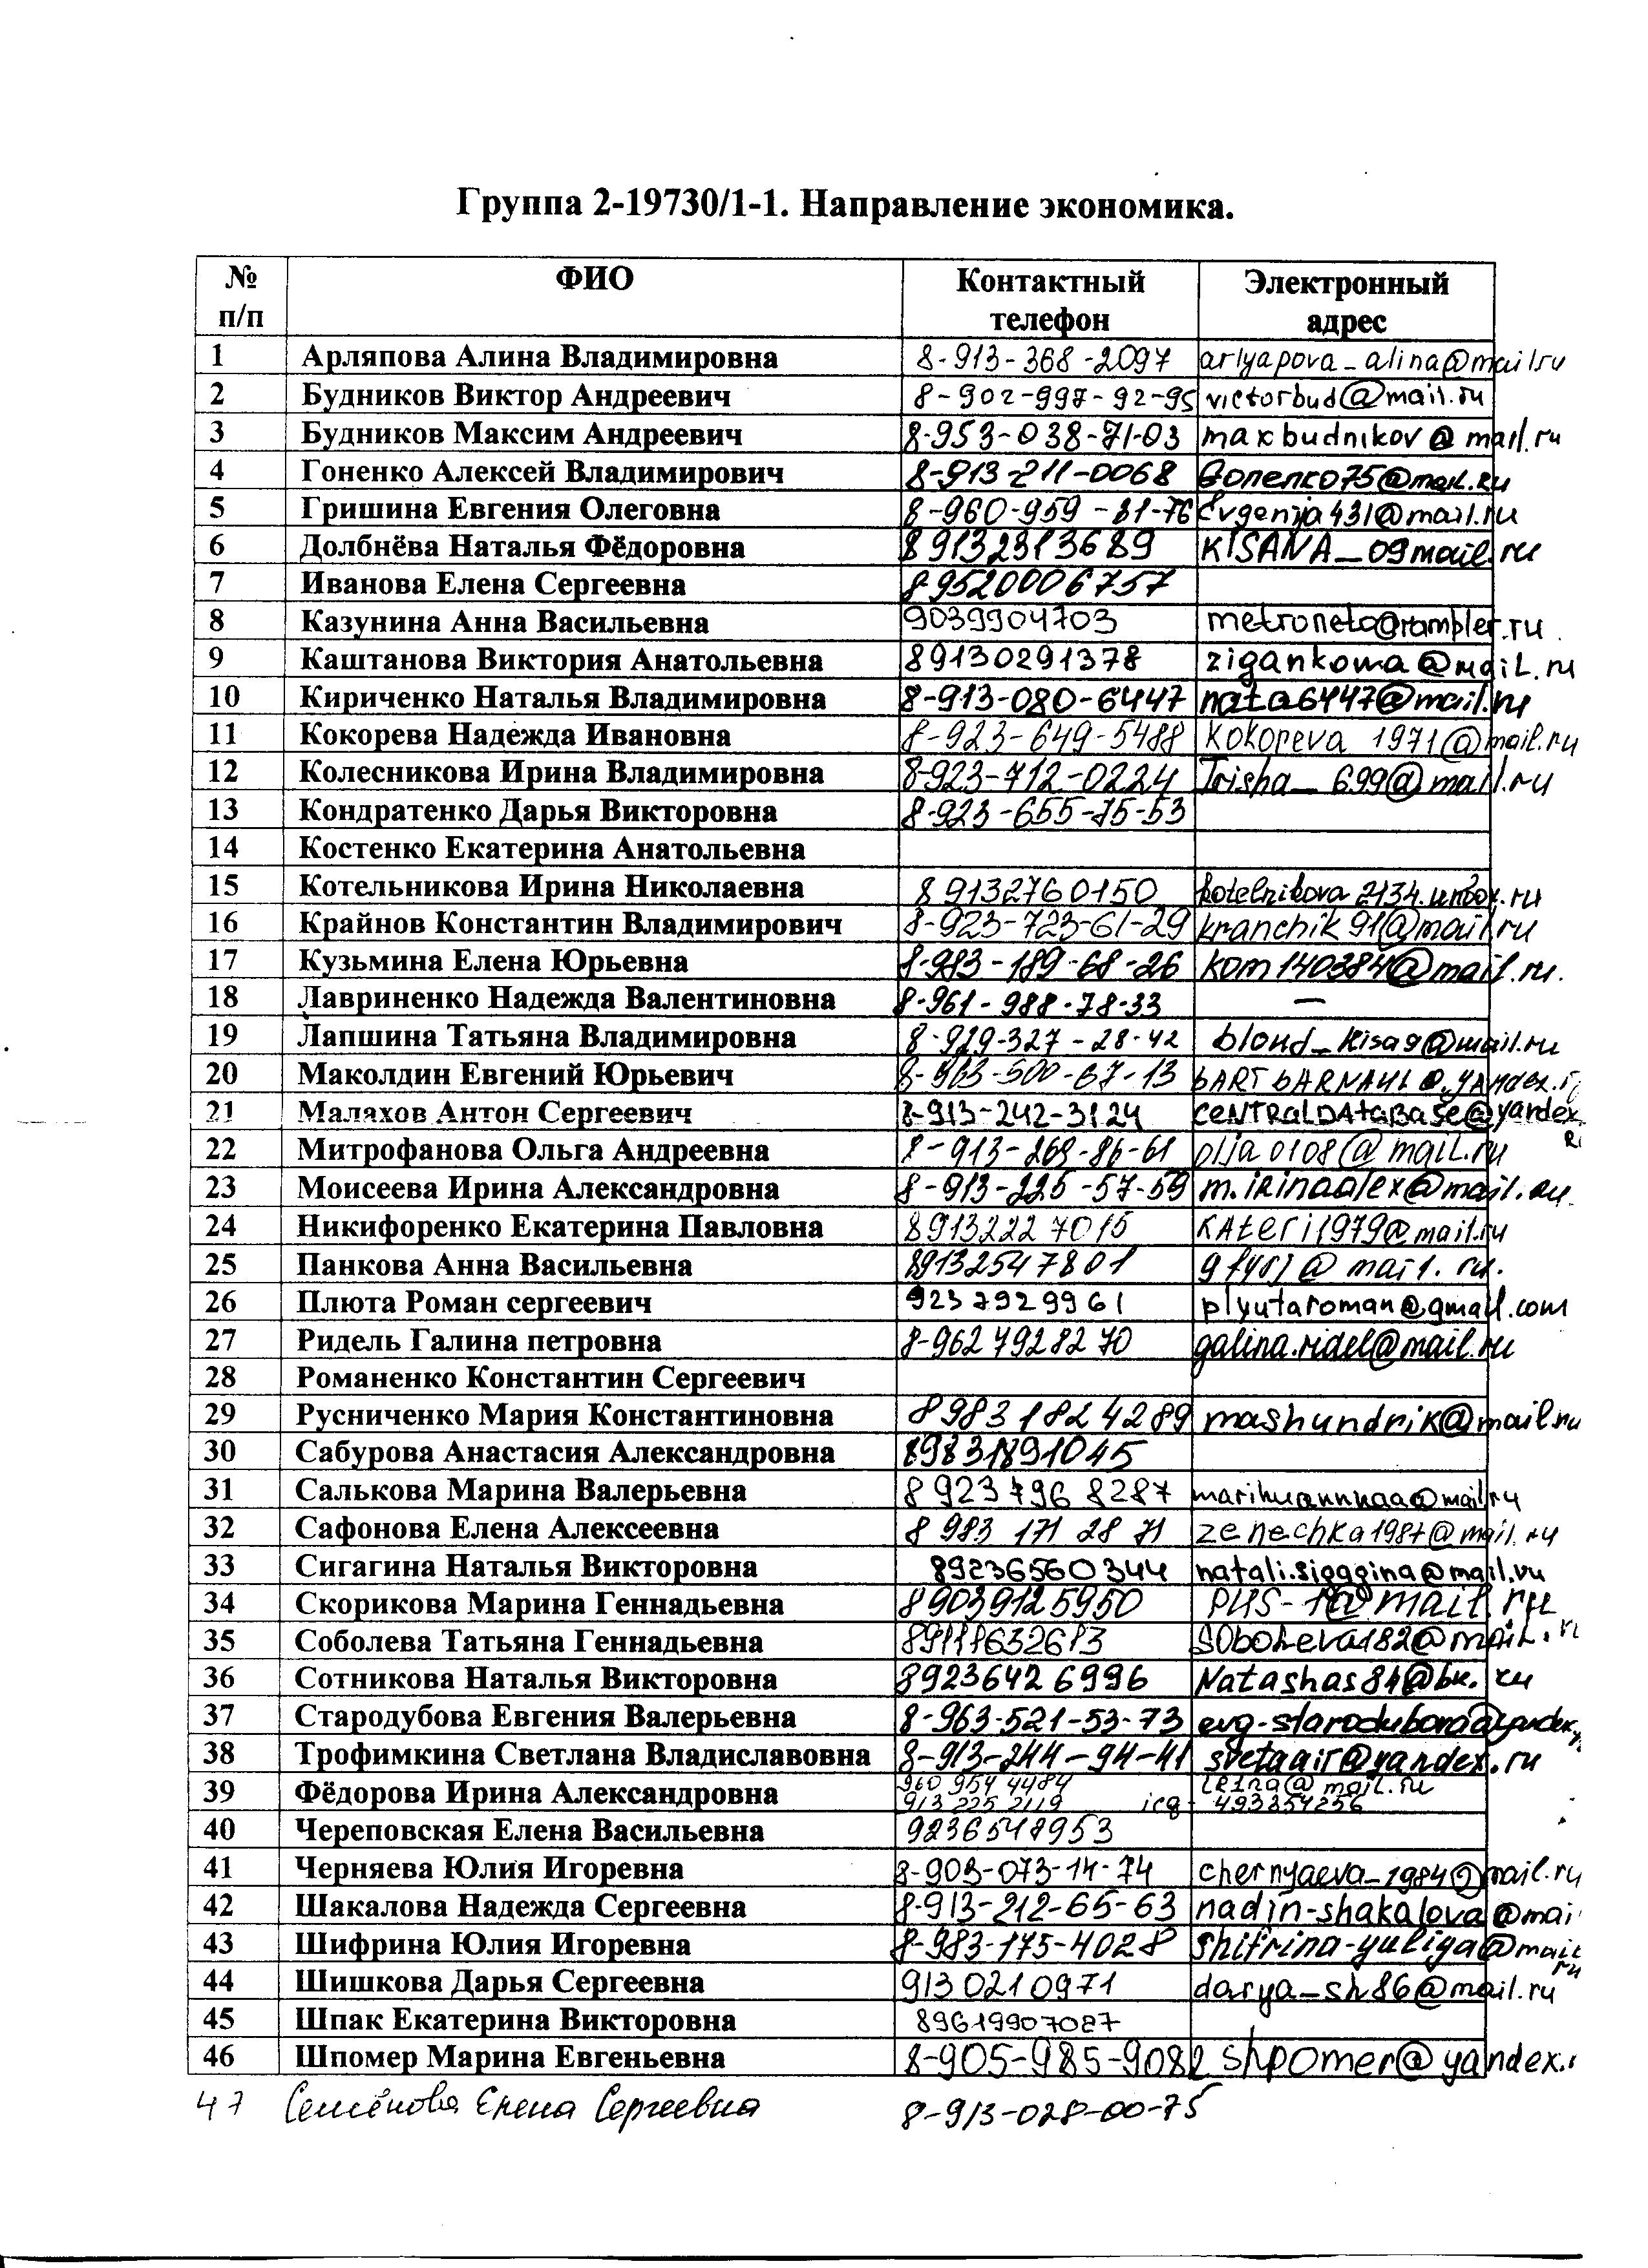 Группа 2-19730/1-1. Направление экономика.
№ п/п ФИО Контактный телефон Электронный адрес
1 Арляпова Алина Владимировна 8-913-368-2097 arlyapova_alina@mail.ru
2 Будников Виктор Андреевич 8-902-997-92-95 victorbud@mail.ru
3 Будников Максим Андреевич 8-953-038-71-03 maxbudnikov@mail.ru
4 Гоненко Алексей Владимирович 8-913-211-0068 Gonenco75@mail.ru
5 Гришина Евгения Олеговна 8-960-959-81-76 Evgenija431@mail.ru
6 Долбнёва Наталья Фёдоровна 89132313689 KISANA_09mail.ru
7 Иванова Елена Сергеевна 89520006757
8 Казунина Анна Васильевна 9039904703 metroneto@rambler.ru
9 Каштанова Виктория Анатольевна 89130291378 zigankoma@mail.ru
10 Кириченко Наталья Владимировна 8-913-080-6447 nata6447@mail.ru
11 Кокорева Надежда Ивановна 8-923-649-5488 Kokoreva 1971@mail.ru
12 Колесникова Ирина Владимировна 8-923-712-0224 Irisha_699@mail.ru
13 Кондратенко Дарья Викторовна 8-923-655-75-53
14 Костенко Екатерина Анатольевна
15 Котельникова Ирина Николаевна 89132760150
16 Крайнов Константин Владимирович 8-923-723-61-29 kranchik91@mail.ru
17 Кузьмина Елена Юрьевна 8-983-189-68-26 kom140384@mail.ru.
18 Лавриненко Надежда Валентиновна 8-961-988-78-33 —
19 Лапшина Татьяна Владимировна 8-929-327-28-42 blond_kisa9@mail.ru
20 Маколдин Евгений Юрьевич 8-963-500-67-13
21 Малахов Антон Сергеевич 8-913-242-3124 CENTRALDATABASE@yandex
RU
22 Митрофанова Ольга Андреевна 8-913-269-86-61 olja0108@mail.ru
23 Моисеева Ирина Александровна 8-913-225-57-59 m.irinaalex@mail.ru.
24 Никифоренко Екатерина Павловна 89132227015 KAteri1979@mail.ru
25 Панкова Анна Васильевна 89132547801 gfyrj@mail.ru.
26 Плюта Роман сергеевич 9237929961 plyutaroman@gmail.com
27 Ридель Галина петровна 8-9627928270 galina.ridel@mail.ru
28 Романенко Константин Сергеевич
29 Русниченко Мария Константиновна 89831824289 mashundrik@mail.ru
30 Сабурова Анастасия Александровна 89831891045
31 Салькова Марина Валерьевна 8 923 796 8287 marihuannnaa@mail.ru
32 Сафонова Елена Алексеевна 8 983 171 28 71 zenechka1987@mail.ru
33 Сигагина Наталья Викторовна 89236560344 natali.sigagina@mail.ru
34 Скорикова Марина Геннадьевна 89039125950 PHS-1@mail.ru
35 Соболева Татьяна Геннадьевна SOboLeva182@mail.ru
36 Сотникова Наталья Викторовна 89236426996 Natashas84@bk.ru
37 Стародубова Евгения Валерьевна 8-963-521-53-73 evg-starodubova@yandex.
38 Трофимкина Светлана Владиславовна 8-913-244-94-41 svetagir@yandex.ru
39 Фёдорова Ирина Александровна 960 954 4484 leina@mail.ru
913 225 2119 icq - 493854256
40 Череповская Елена Васильевна 9236548953
41 Черняева Юлия Игоревна 8-903-073-14-74 chernyaeva_1984@mail.ru
42 Шакалова Надежда Сергеевна 8-913-212-65-63 nadin-shakalova@mai
43 Шифрина Юлия Игоревна 8-983-175-4028 shifrina-yuliya@mail
ru
44 Шишкова Дарья Сергеевна 9130210971 darya_sh86@mail.ru
45 Шпак Екатерина Викторовна 89619907087
46 Шпомер Марина Евгеньевна 8-905-985-9082 shpomer@yandex.
47 Семёнова Елена Сергеевна 8-913-028-00-75